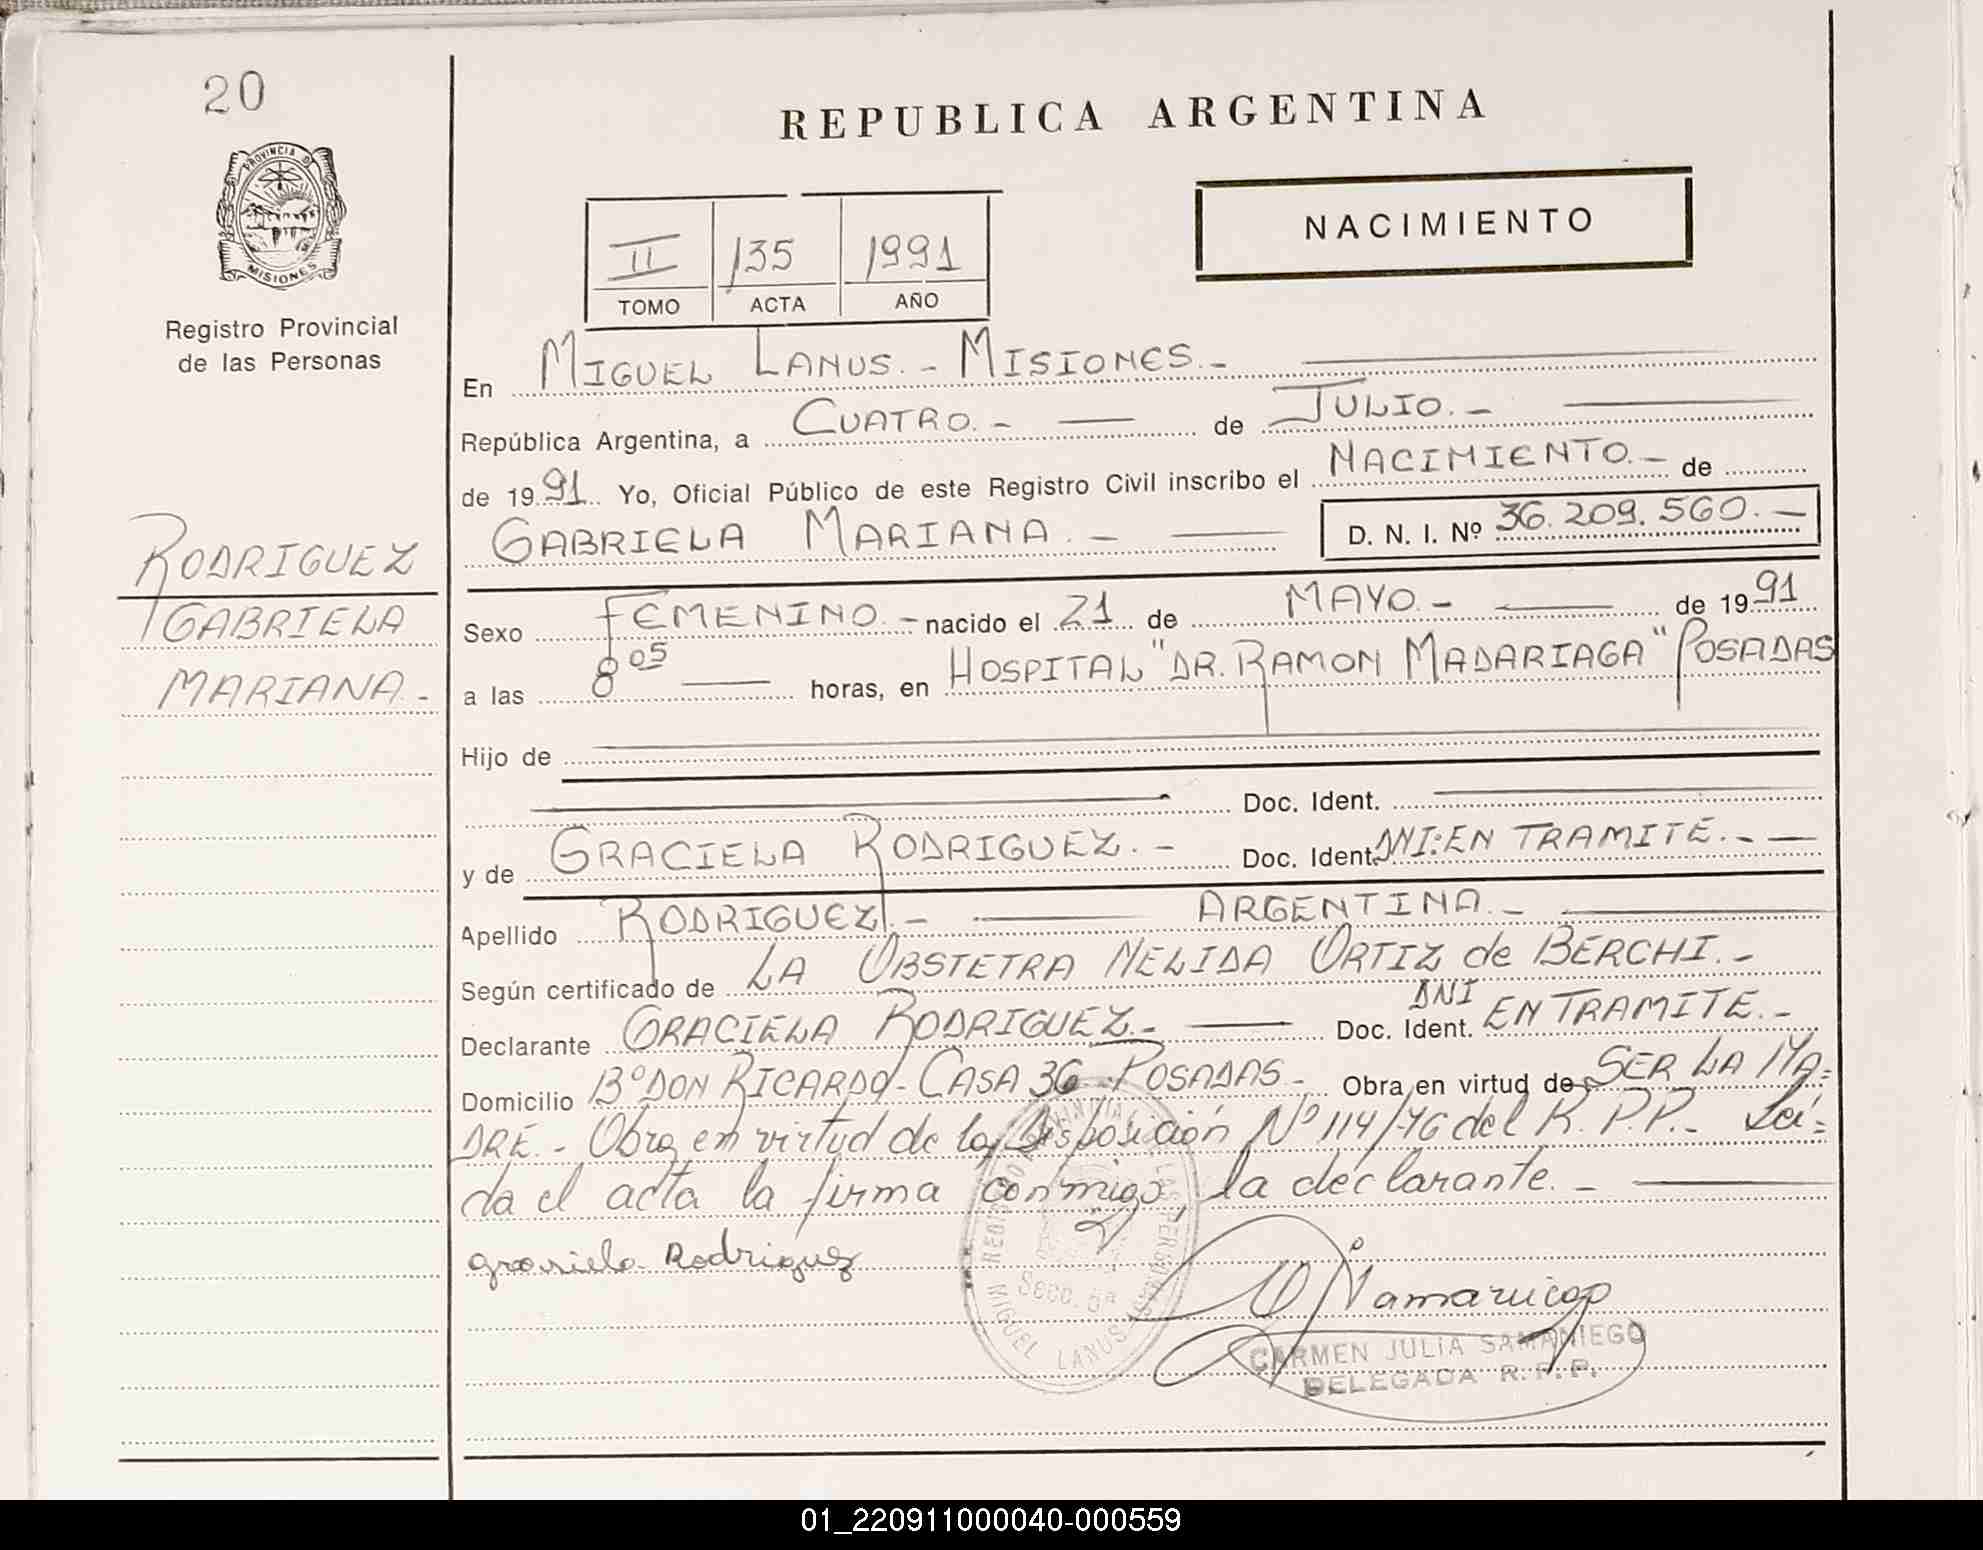 20
REPUBLICA ARGENTINA
PROVINCIA D
MISIONES
Registro Provincial
de las Personas
NACIMIENTO
II 135 1991
TOMO ACTA AÑO
En MIGUEL LANUS.- MISIONES.-
República Argentina, a CUATRO.- de JULIO.-
de 1991. Yo, Oficial Público de este Registro Civil inscribo el NACIMIENTO.- de
GABRIELA MARIANA.- D. N. I. Nº 36.209.560.-
RODRIGUEZ
GABRIELA
MARIANA.-
Sexo FEMENINO.- nacido el 21 de MAYO.- de 1991
a las 8 05 horas, en HOSPITAL "DR. RAMON MADARIAGA" POSADAS
Hijo de
Doc. Ident.
y de GRACIELA RODRIGUEZ.- Doc. Ident. DNI: EN TRAMITE.-
Apellido RODRIGUEZ.- ARGENTINA.-
Según certificado de LA OBSTETRA NELIDA ORTIZ de BERCHI.-
Declarante GRACIELA RODRIGUEZ.- Doc. Ident. DNI EN TRAMITE.-
Domicilio Bº DON RICARDO- CASA 36 POSADAS.- Obra en virtud de SER LA MA=
DRE.- Obra en virtud de la Disposición Nº 114/76 del R.P.P.- Leí=
da el acta la firma conmigo, la declarante.-
Graciela Rodriguez
Secc. 5ª
MIGUEL LANUS
CARMEN JULIA SAMANIEGO
DELEGADA R.P.P.
01_220911000040-000559